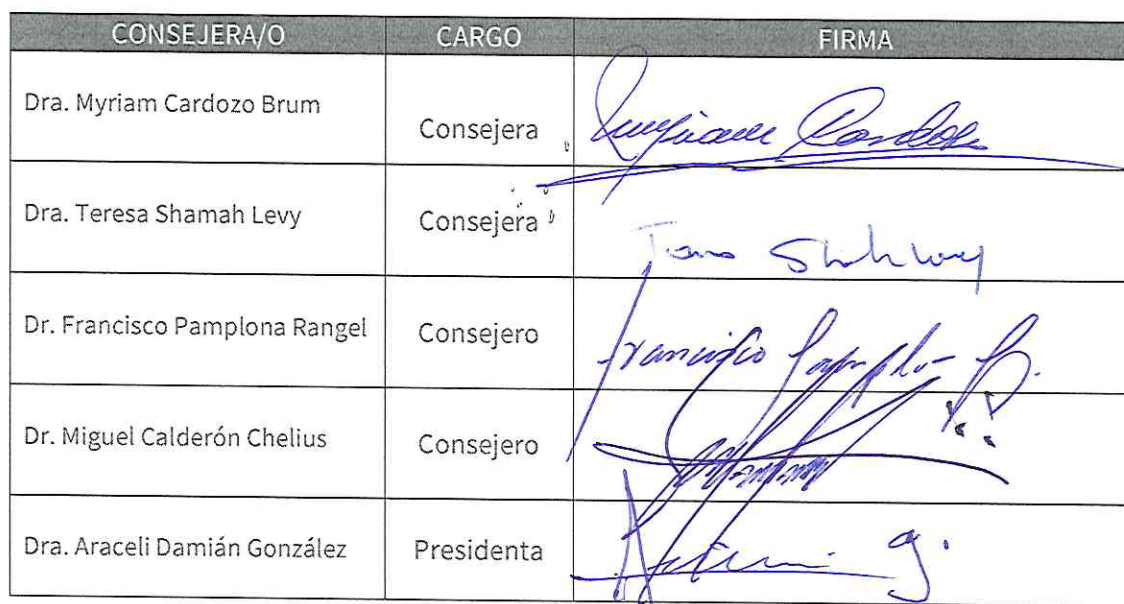 CONSEJERA/O CARGO FIRMA
Dra. Myriam Cardozo Brum Consejera
Dra. Teresa Shamah Levy Consejera
Dr. Francisco Pamplona Rangel Consejero Francisco
Dr. Miguel Calderón Chelius Consejero
Dra. Araceli Damián González Presidenta